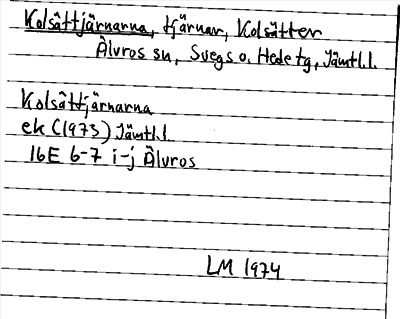 Kolsättjärnarna, tjärnar, Kolsätter
Älvros sn, Svegs o. Hede tg, Jämtl.l.
Kolsättjärnarna
ek (1973) Jämtl.l.
16E 6-7 i-j Älvros
LM 1974